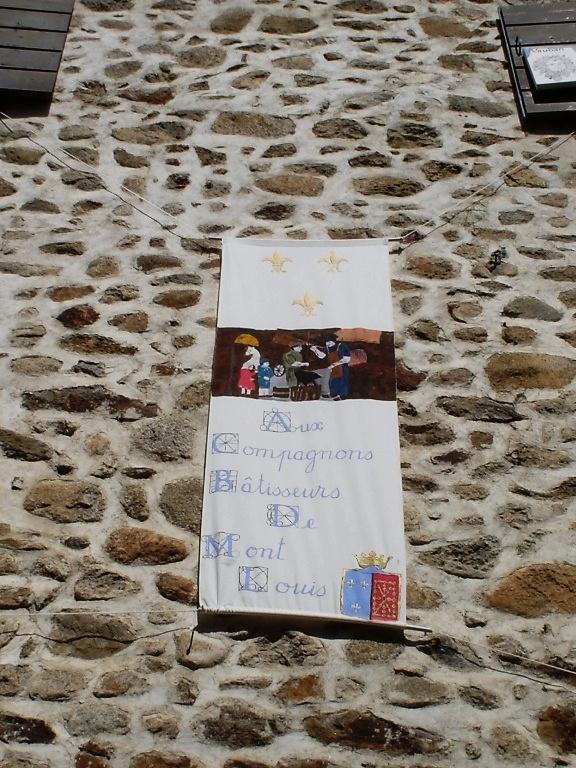 Vauban
Aux
Compagnons
Bâtisseurs
De
Mont
Louis